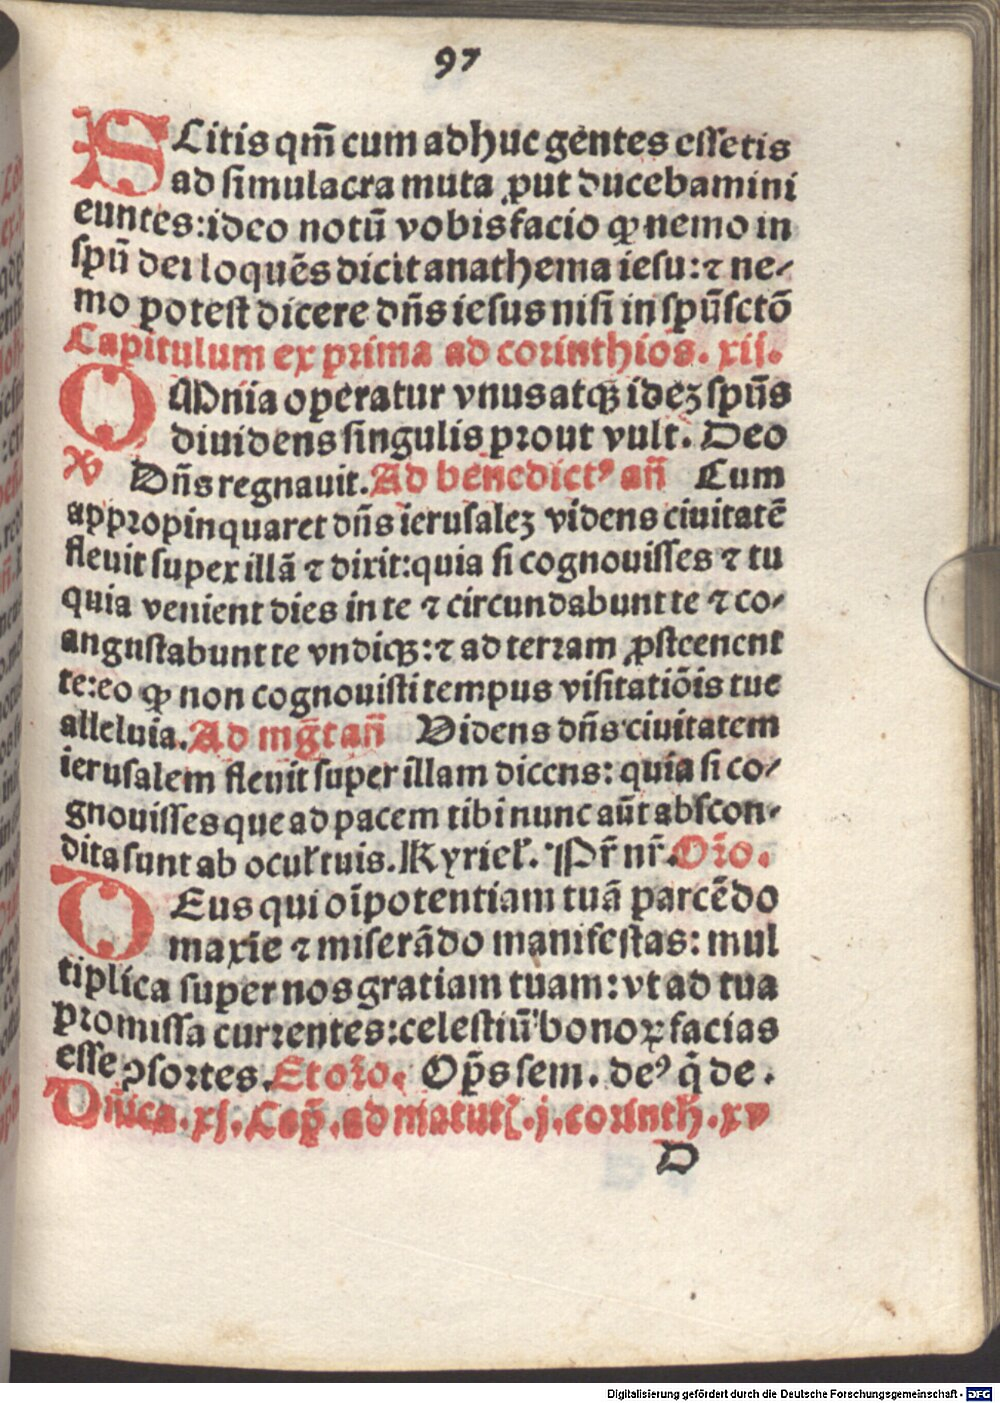 97
SCitis qm̄ cum adhuc gentes essetis
ad simulacra muta ꝓut ducebamini
euntes: ideo notū vobis facio ꝙ nemo in
spū dei loquēs dicit anathema iesu: ⁊ ne⸗
mo potest dicere dn̄s iesus nisi in spū sctō
Capitulum ex prima ad corinthios. xii.
OMnia operatur vnus atqꝫ ideꝫ spūs
diuidens singulis prout vult. Deo
Dn̄s regnauit. Ad benedictꝰ an̄ Cum
appropinquaret dn̄s ierusaleꝫ videns ciuitatē
fleuit super illā ⁊ dixit: quia si cognouisses ⁊ tu
quia venient dies in te ⁊ circundabunt te ⁊ co⸗
angustabunt te vndiqꝫ: ⁊ ad terram ꝓstcenent
te: eo ꝙ non cognouisti tempus visitatiōis tue
alleluia. Ad mḡt an̄ Videns dn̄s ciuitatem
ierusalem fleuit super illam dicens: quia si co⸗
gnouisses que ad pacem tibi nunc aūt abscon⸗
dita sunt ab ocuł tuis. Kyrieł. Pr̄ nr̄. Or̄o.
DEus qui oīpotentiam tuā parcēdo
maxīe ⁊ miserādo manifestas: mul
tiplica super nos gratiam tuam: vt ad tua
promissa currentes: celestiū bonoꝝ facias
esse ꝯsortes. Et or̄o. Op̄s sem. deꝰ q̄ de.
Dn̄ica. xj. Cap̄. ad matuť. j. corinth. xv
D
Digitalisierung gefördert durch die Deutsche Forschungsgemeinschaft - DFG